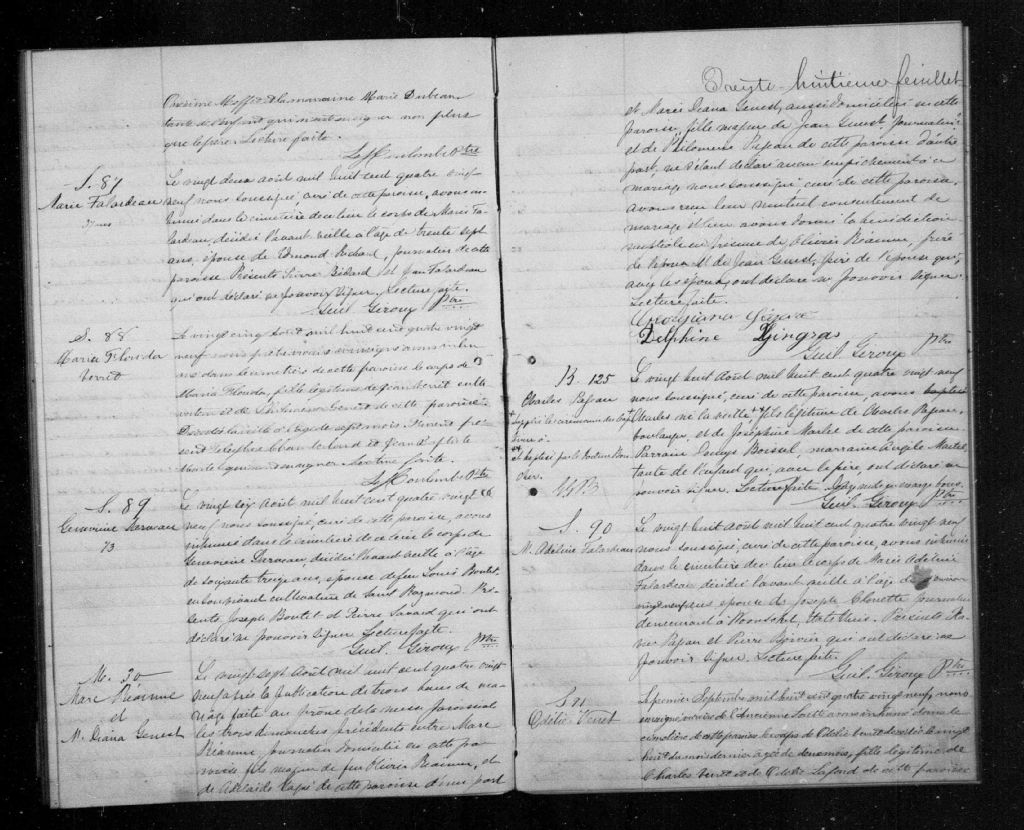 Onésime Moffet et la marraine Marie Dubeau
tante de l'enfant qui n'ont su signer non plus
que le père. Lecture faite.
Ptre
S. 87
Marie Falardeau
37 ans
Le vingt deux août mil huit cent quatre vingt
neuf nous soussigné, curé de cette paroisse, avons in-
humé dans le cimetière de ce lieu le corps de Marie Fa-
lardeau, décédée l'avant veille à l'âge de trente sept
ans, épouse de Edmond Richard, journalier de cette
paroisse. Présents Pierre Bédard et Jean Falardeau
qui ont déclaré ne pouvoir signer. Lecture faite.
Guil. Giroux Ptre
S. 88
Maria Florida
Verret
Le vingt cinq août mil huit cent quatre vingt
neuf nous prêtre vicaire soussigné avons inhu-
mé dans le cimetière de cette paroisse le corps de
Maria Florida, fille légitime de Jean Verret culti-
vateur et de Philomène Genest de cette paroisse.
Décédée la veille à l'âge de sept mois. Furent pré-
sents et Jean Baptiste
Martel qui n'ont su signer. Lecture faite.
Ptre
S. 89
Geneviève Derveau
73
Le vingt six août mil huit cent quatre vingt
neuf nous soussigné, curé de cette paroisse, avons
inhumé dans le cimetière de ce lieu le corps de
Geneviève Derveau, décédée l'avant veille à l'âge
de soixante treize ans, épouse de feu Louis Boutet,
en son vivant cultivateur de Saint Raymond. Pré-
sents Joseph Boutet et Pierre Savard qui ont
déclaré ne pouvoir signer. Lecture faite.
Guil. Giroux Ptre
M. 30
Marc Réaume
et
M. Diana Genest
Le vingt sept août mil huit cent quatre vingt
neuf après la publication de trois bans de ma-
riage faite au prône de la messe paroissiale
les trois dimanches précédents entre Marc
Réaume, journalier domicilié en cette pa-
roisse fils majeur de feu Olivier Réaume, et
de Adélaïde de cette paroisse d'une part
Trente huitième feuillet
et Marie Diana Genest, aussi domiciliée en cette
paroisse, fille majeure de Jean Genest, journalier
et de Philomène Pageau de cette paroisse d'autre
part, ne s'étant déclaré aucun empêchement à ce
mariage nous soussigné, curé de cette paroisse,
avons reçu leur mutuel consentement de
mariage et leur avons donné la bénédiction
nuptiale en présence de Olivier Réaume, frère
de l'époux et de Jean Genest, père de l'épouse qui,
avec les époux, ont déclaré ne pouvoir signer.
Lecture faite.
Delphine Gingras
Guil. Giroux Ptre
B. 125
Charles Pageau
+ suppléé les cérémonies du bap-
tême à
++ et baptisé par le Docteur
G. G. Ptre
Le vingt huit août mil huit cent quatre vingt neuf
nous soussigné, curé de cette paroisse, avons + baptisé
Charles né la veille ++ fils légitime de Charles Pageau,
boulanger, et de Joséphine Martel de cette paroisse.
Parrain Louis Boissel, marraine Angèle Martel
tante de l'enfant qui, avec le père, ont déclaré ne
pouvoir signer. Lecture faite.
Guil. Giroux Ptre
S. 90
M. Adéline Falardeau
Le vingt huit août mil huit cent quatre vingt neuf
nous soussigné, curé de cette paroisse, avons inhumé
dans le cimetière de ce lieu le corps de Marie Adéline
Falardeau décédée l'avant veille à l'âge de environ
vingt neuf ans épouse de Joseph Clouette journalier
demeurant à Woonsocket, Etats Unis. Présents
Pageau et Pierre Boivin qui ont déclaré ne
pouvoir signer. Lecture faite.
Guil. Giroux Ptre
S 91
Odélie Verret
Le premier Septembre mil huit cent quatre vingt neuf, nous
soussigné vicaire de l'Ancienne Lorette avons inhumé dans le
cimetière de cette paroisse le corps de Odélie Verret décédée le vingt
huit du mois dernier âgée de deux mois, fille légitime de
Charles Verret et de Odélie Lafond de cette paroisse